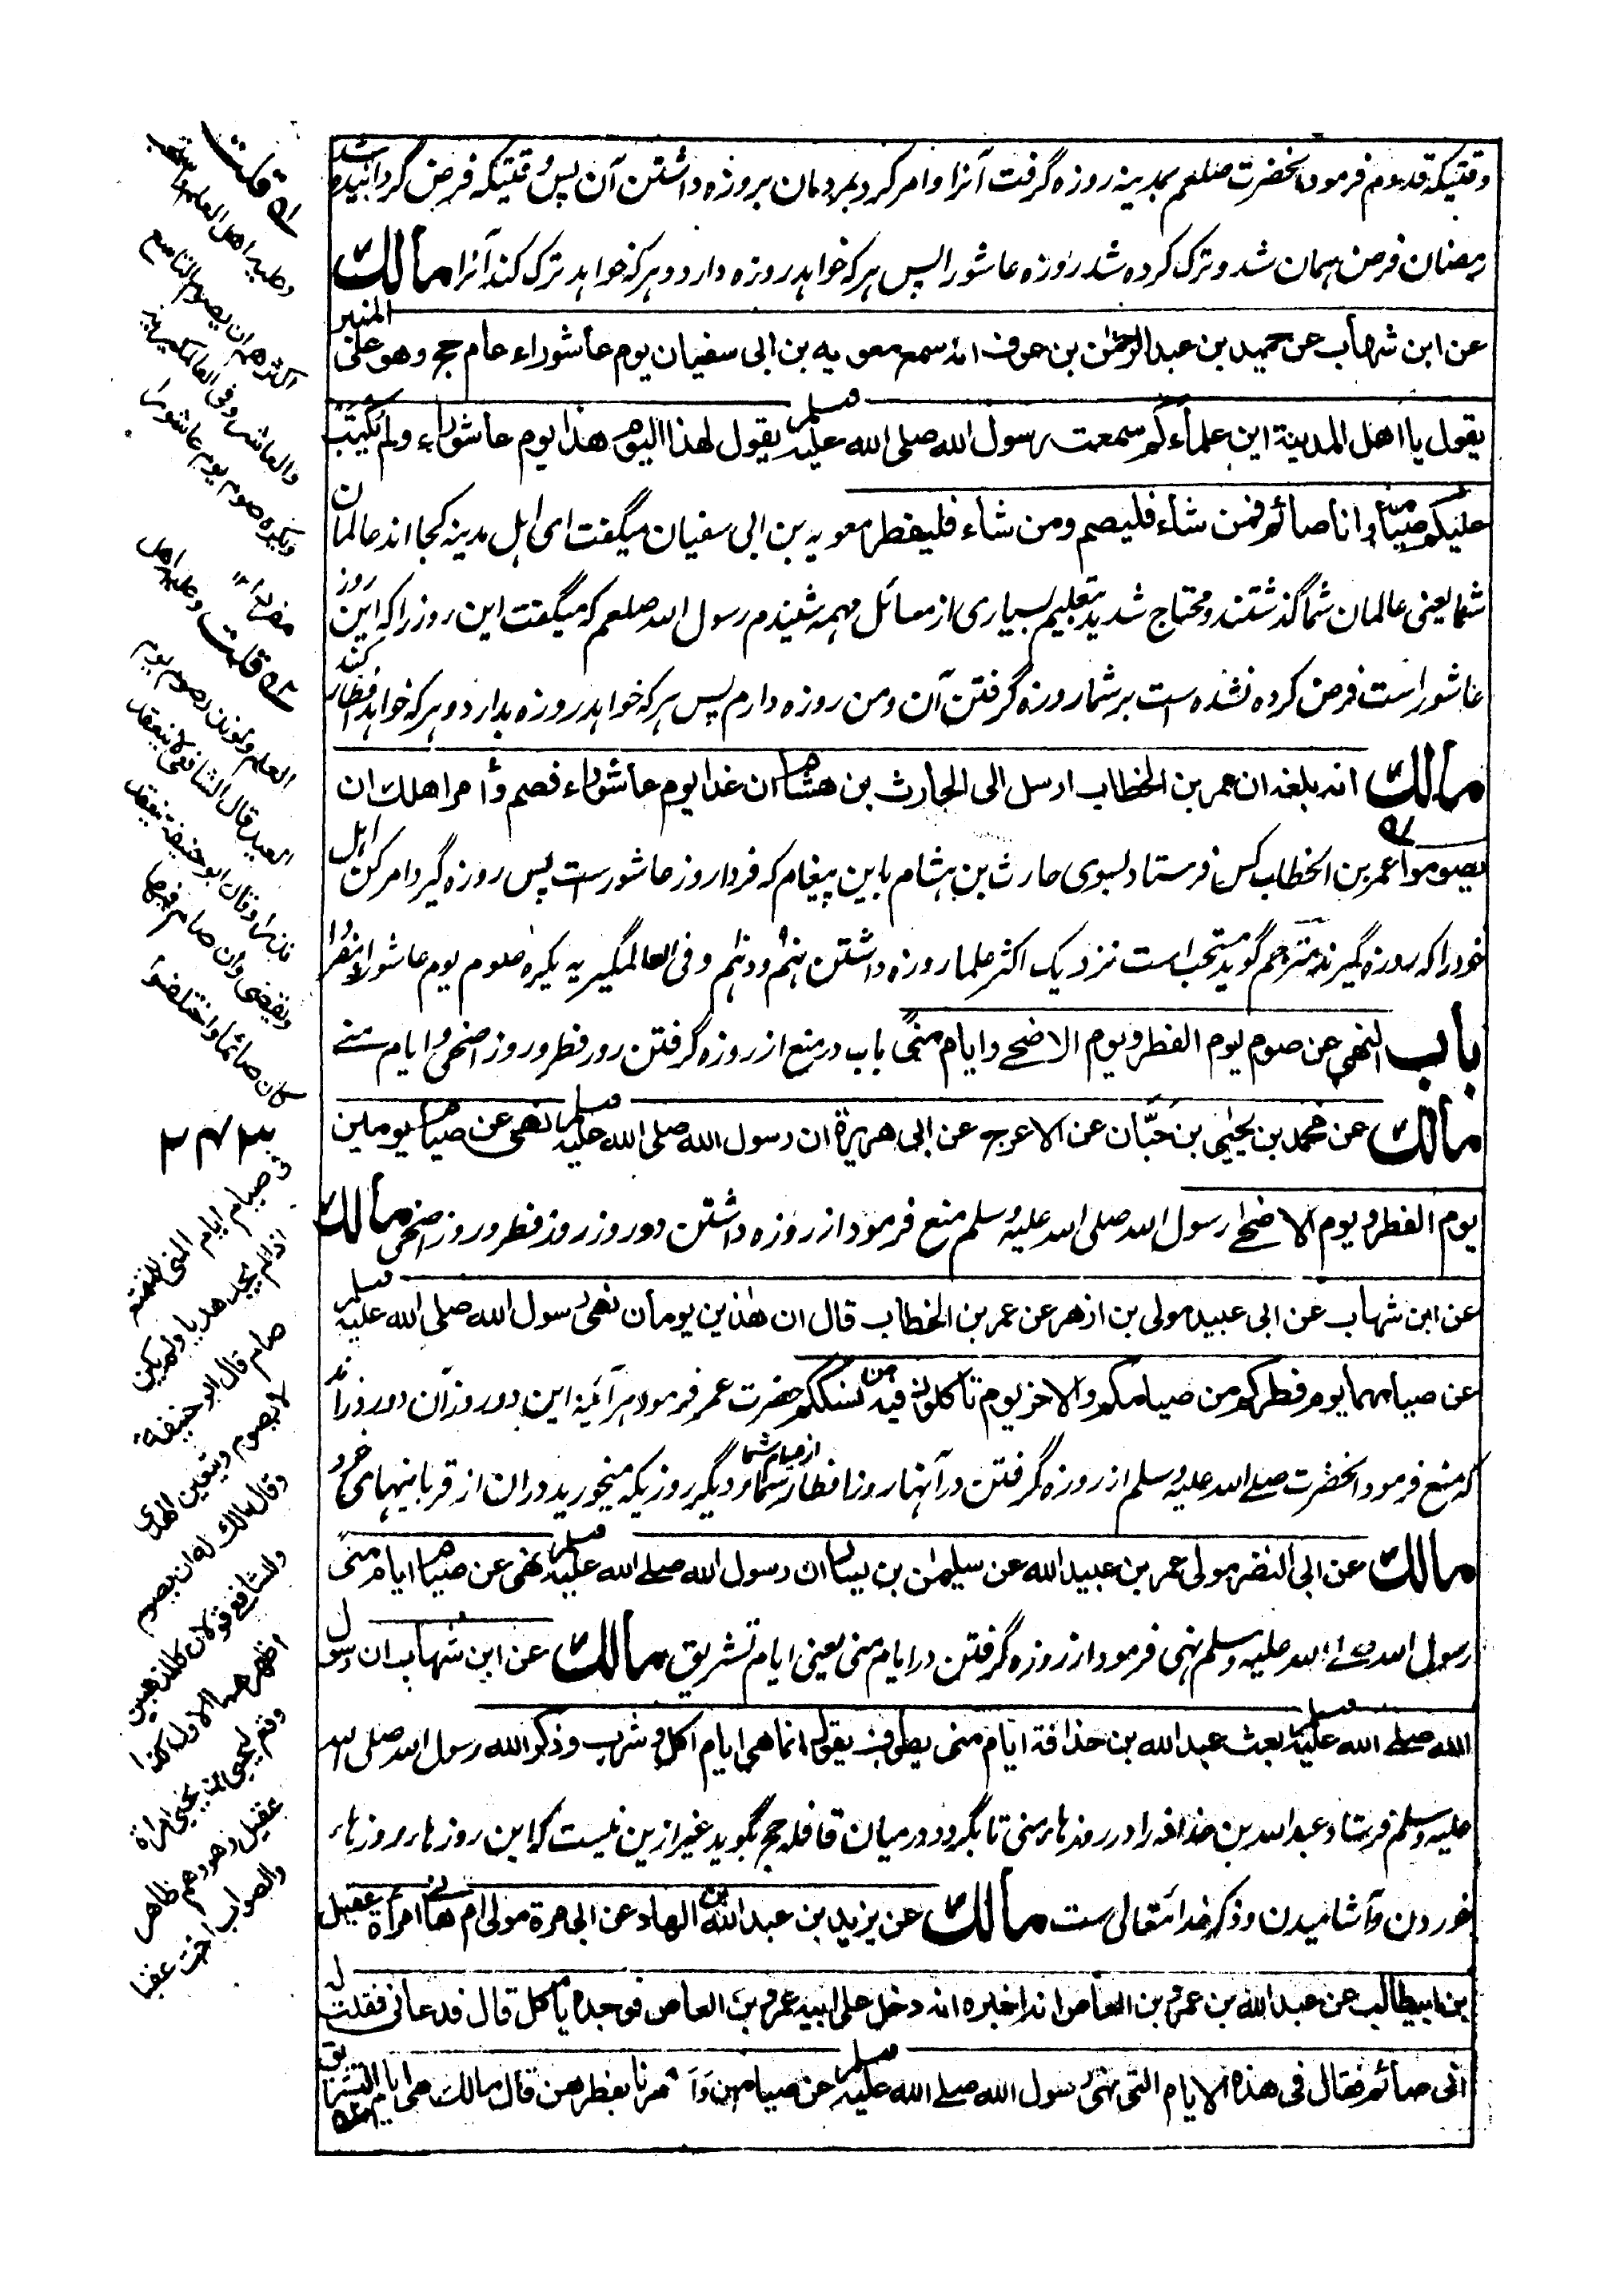 وقتیکه قدوم فرمود آنحضرت صلعم بمدینه روزه گرفت آنرا وامر کرد بمردمان بروزه داشتن آن پس وقتیکه فرض گردانیده شد
رمضان فرض همان شد وترک کرده شد روزه عاشورا پس هر که خواهد روزه دارد وهر که خواهد ترک کند آنرا مالك
عن ابن شهاب عن حميد بن عبد الرحمن بن عوف انه سمع معوية بن ابى سفيان يوم عاشوراء عام حج وهو على المنبر
يقول يا اهل المدينة اين علماءكم سمعت رسول الله صلى الله عليه وسلم يقول لهذا اليوم هذا يوم عاشوراء ولم يكتب
عليكم صيامه وانا صائم فمن شاء فليصم ومن شاء فليفطر معویه بن ابی سفیان میگفت ای اهل مدینه کجا اند عالمان
شما یعنی عالمان شما گذشتند ومحتاج شدید بتعلیم بسیاری از مسائل مهمه شنیدم رسول الله صلعم که میگفت این روز را که این روز
عاشوراست فرض کرده نشده است بر شما روزه گرفتن آن ومن روزه دارم پس هر که خواهد روزه بدارد وهر که خواهد افطار کند
مالك انه بلغه ان عمر بن الخطاب ارسل الى الحارث بن هشام ان غدا يوم عاشوراء فصم وأمر اهلك ان
يصوموا عمر بن الخطاب کس فرستاد بسوی حارث بن هشام باین پیغام که فردا روز عاشورست پس روزه گیر وامر کن اهل
خود را که روزه گیرند مترجم گوید مستحب است نزدیک اکثر علما روزه داشتن نهم ودهم وفی العالمگیریه یکره صوم یوم عاشورا منفردا
باب النهي عن صوم يوم الفطر ويوم الاضحى وايام منى باب در منع از روزه گرفتن روز فطر وروز اضحی وایام منی
مالك عن محمد بن يحيى بن حبّان عن الاعرج عن ابى هريرة ان رسول الله صلى الله عليه وسلم نهى عن صيام يومين
يوم الفطر ويوم الاضحى رسول الله صلی الله علیه وسلم منع فرمود از روزه داشتن دو روز روز فطر وروز اضحی مالك
عن ابن شهاب عن ابى عبيد مولى بن ازهر عن عمر بن الخطاب قال ان هذين يومان نهى رسول الله صلى الله عليه وسلم
عن صيامهما يوم فطركم من صيامكم والاخر يوم تأكلون فيه من نسككم حضرت عمر فرمود هر آئینه این دو روز آن دو روزاند
که منع فرمود آنحضرت صلے الله علیه وسلم از روزه گرفتن در آنها روز افطار شما از صیام شما ودیگر روزیکه میخورید دران از قربانیهای خود
مالك عن ابى النضر مولى عمر بن عبيد الله عن سليمن بن يسار ان رسول الله صلے الله عليه وسلم نهى عن صيام ايام منى
رسول الله صلے الله علیه وسلم نهی فرمود از روزه گرفتن در ایام منی یعنی ایام تشریق مالك عن ابن شهاب ان رسول
الله صلے الله عليه وسلم بعث عبد الله بن حذافة ايام منى يطوف يقول انما هى ايام اكل وشرب وذكر الله رسول الله صلی الله
علیه وسلم فرستاد عبد الله بن حذافه را در روزهاء منی تا بگردد در میان قافله حج بگوید غیر ازین نیست که این روزهاء روزهاء
خوردن وآشامیدن وذکر خدا تعالی ست مالك عن يزيد بن عبد الله بن الهاد عن ابى مرة مولى ام هانى امرأة عقيل
بن ابيطالب عن عبد الله بن عمرو بن العاص انه اخبره انه دخل على ابيه عمرو بن العاص فوجده يأكل قال فدعانى فقلت له
انى صائم فقال فى هذه الايام التى نهى رسول الله صلے الله عليه وسلم عن صيامهن وأمرنا بفطرهن قال مالك هى ايام التشريق
قلت
وعليه اهل العلم
اكثرهم ان يصوم التاسع
والعاشر وفى العالمكيرية
ويكره صوم يوم عاشورا
مفردا ١٢
قلت وعليه اهل
العلم
العيد قال الشافعى لا ينعقد
نذره وقال ابو حنيفة ينعقد
ويقضى وان صام فيها
كان صائما واختلفوا
فى صيام ايام منى للمتمتع
اذا لم يجد هديا ولم يكن
صام قال ابو حنيفة
لا يصوم ويتعين الهدى
وقال مالك له ان يصوم
وللشافعى قولان كالمذهبين
اظهرهما الاول كذا
وقع ليحيى بن يحيى امرأة
عقيل وهو وهم ظاهر
والصواب اخت عقيل